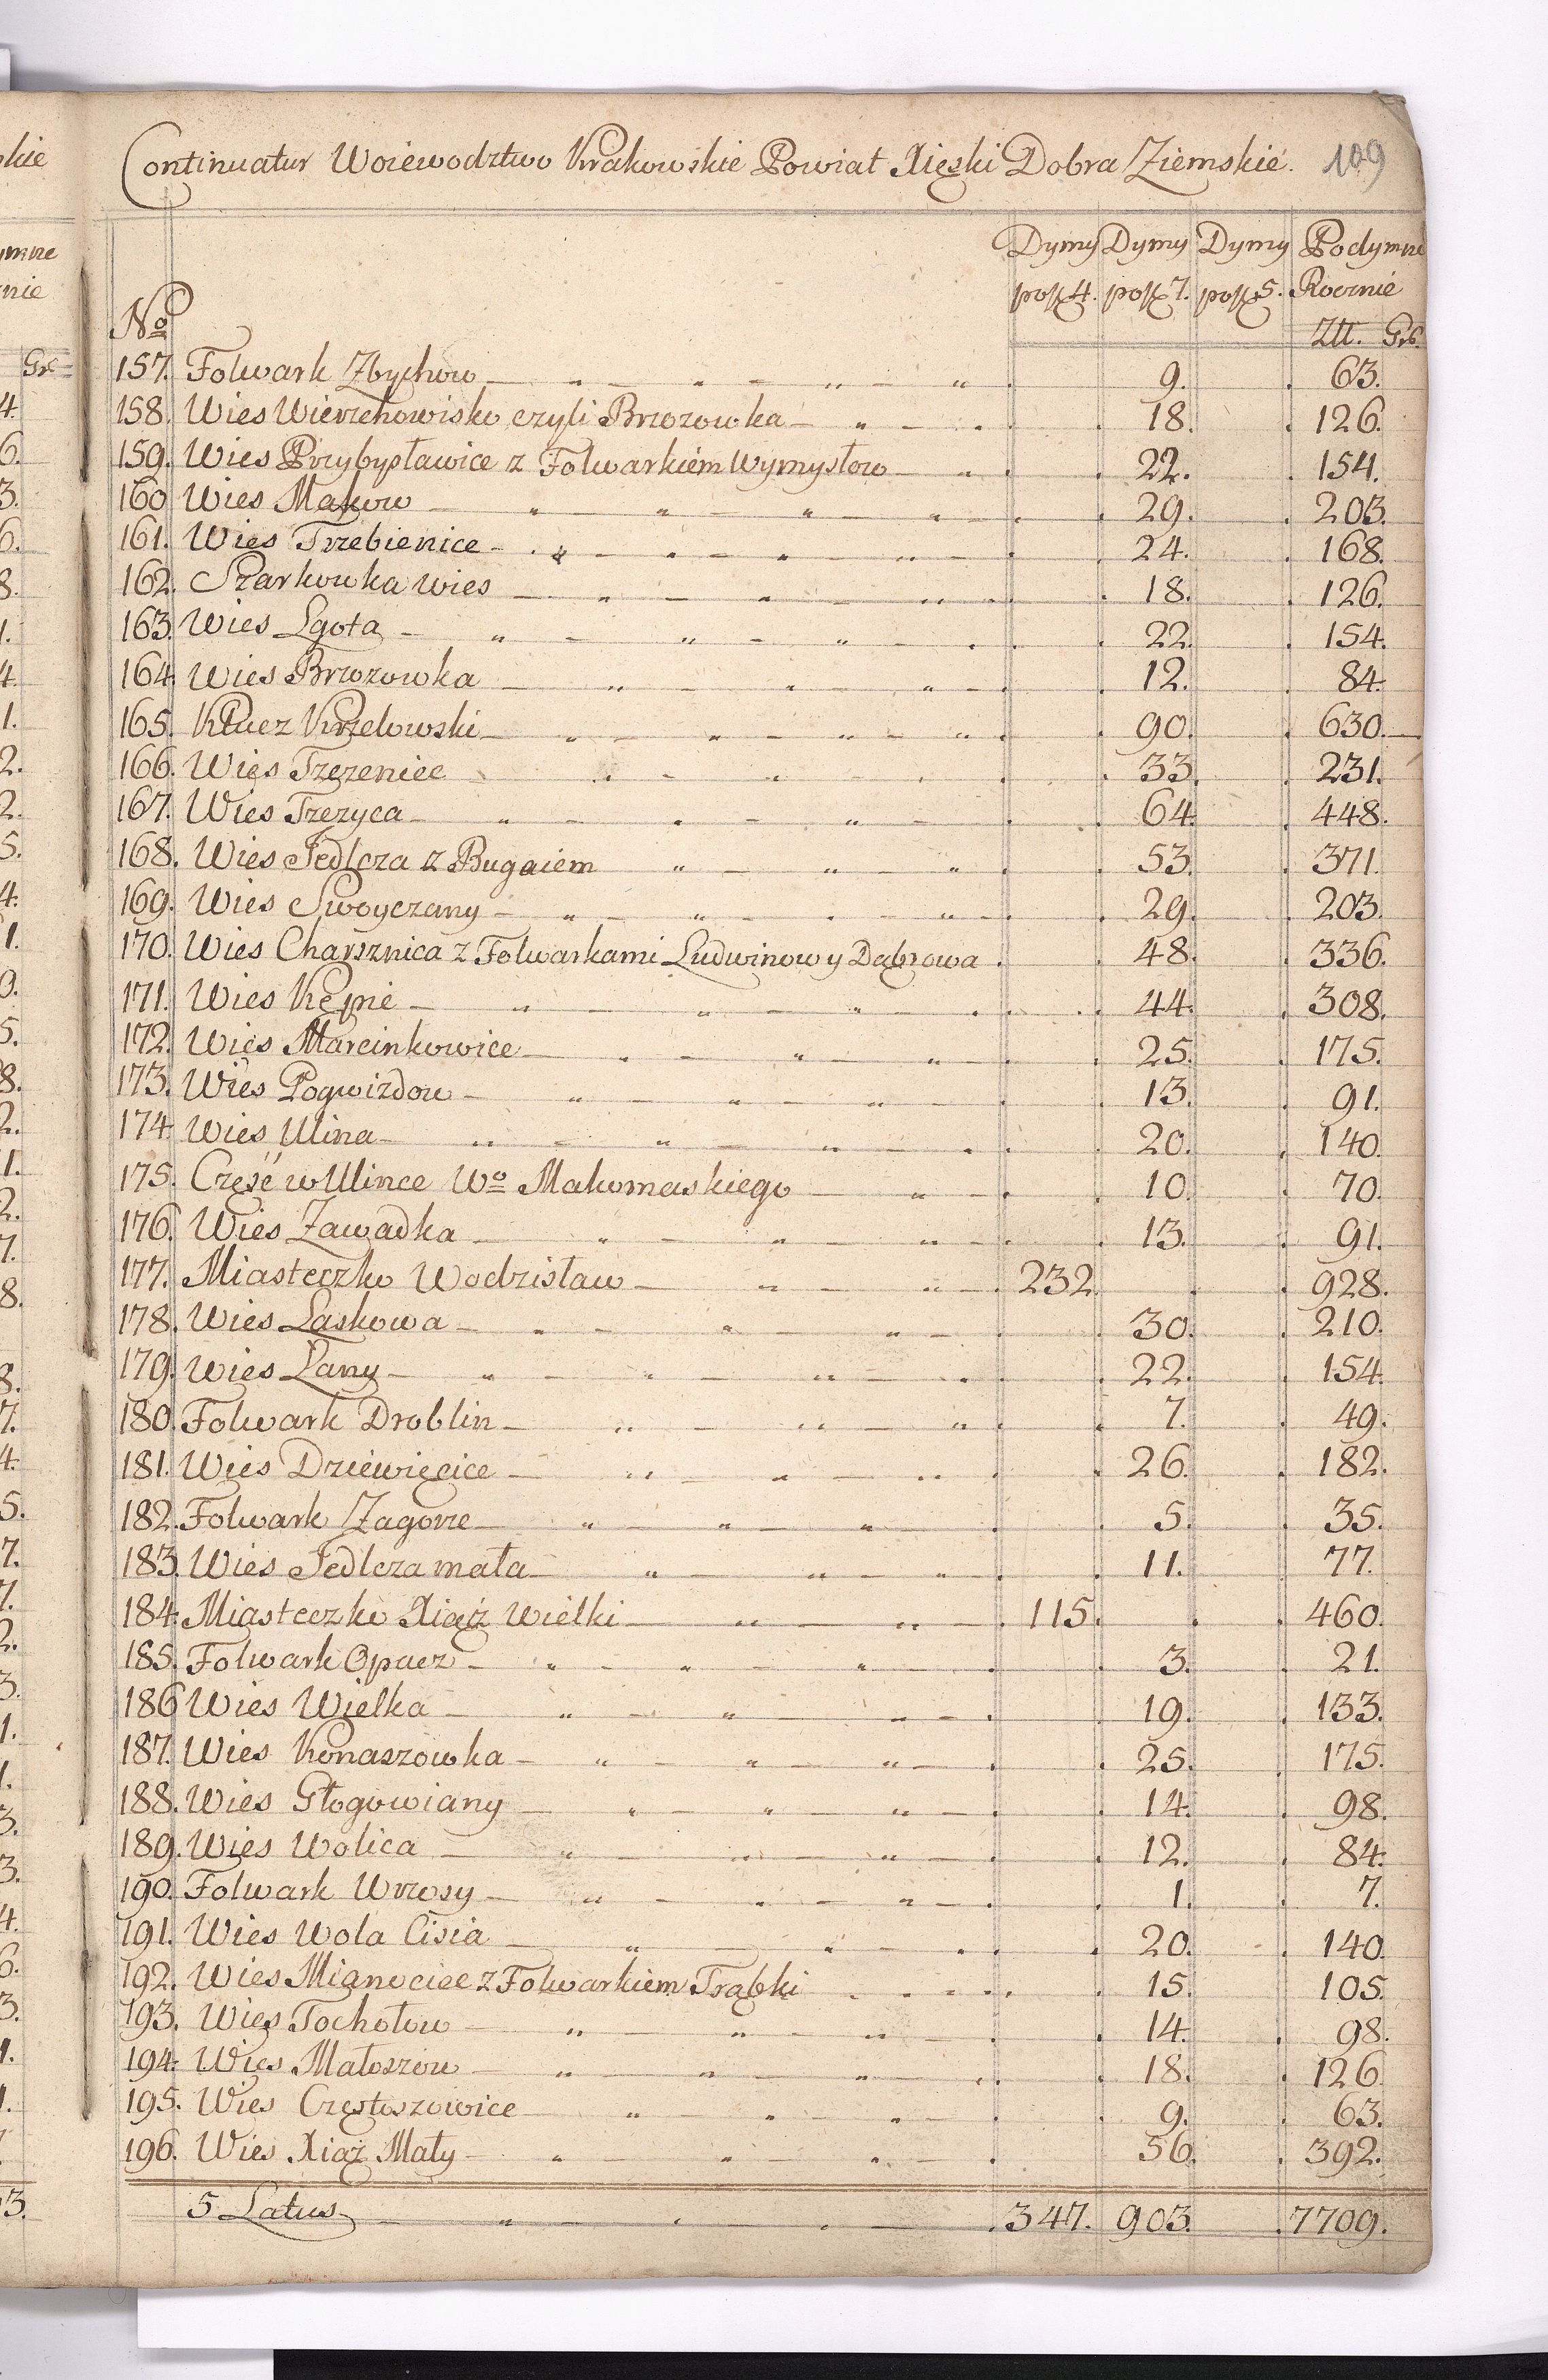 Continuatur Woiewodztwo Krakowskie Powiat Xięski Dobra Ziemskie. 109
Dymy Dymy Dymy Podymne
po 4. po 7. po 5. Rocznie
No
Złł. Grs.
157. Folwark Zbychow 9. 63.
158. Wies Wierzchowisko czyli Brzozowka 18. 126.
159. Wies Przybysławice z Folwarkiem Wymysłow 22. 154.
160 Wies Makow 29. 203.
161. Wies Trzebienice 24. 168.
162. Szarkowka wies 18. 126.
163. Wies Lgota 22. 154.
164. Wies Brzozowka 12. 84.
165. Klucz Krzelowski 90. 630.
166. Wies Tczeniec 33. 231.
167. Wies Tczyca 64. 448.
168. Wies Jedlcza z Bugaiem 53. 371.
169. Wies Swoyczany 29. 203.
170. Wies Charsznica z Folwarkami Ludwinow y Dąbrowa 48. 336.
171. Wies Kępie 44. 308.
172. Wies Marcinkowice 25. 175.
173. Wies Pogwizdow 13. 91.
174. Wies Ulina 20. 140.
175. Część w Ulince Wo Makomaskiego 10. 70.
176. Wies Zawadka 13. 91.
177. Miasteczko Wodzisław 232. 928.
178. Wies Laskowa 30. 210.
179. Wies Łany 22. 154.
180. Folwark Droblin 7. 49.
181. Wies Dziewięcice 26. 182.
182. Folwark Zagorze 5. 35.
183. Wies Jedlcza mała 11. 77.
184. Miasteczko Xiąż Wielki 115. 460.
185. Folwark Opacz 3. 21.
186 Wies Wielka 19. 133.
187. Wies Konaszowka 25. 175.
188. Wies Głogowiany 14. 98.
189. Wies Wolica 12. 84.
190. Folwark Wrzosy 1. 7.
191. Wies Wola Cisia 20. 140.
192. Wies Mianocice z Folwarkiem Trąbki 15. 105.
193. Wies Tochołow 14. 98.
194. Wies Małoszow 18. 126.
195. Wies Częstoszowice 9. 63.
196. Wies Xiąż Mały 56. 392.
5 Latus 347. 903. 7709.